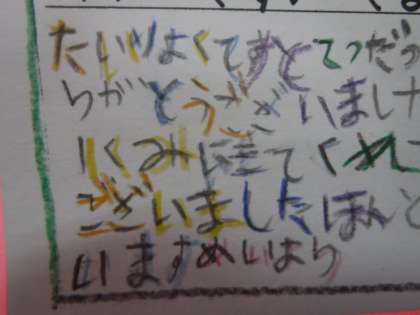 たいりよくてすとてつだっ
らがとうござ゛いました
1くみにきてくれて
ございましたほんと
いますめいはら